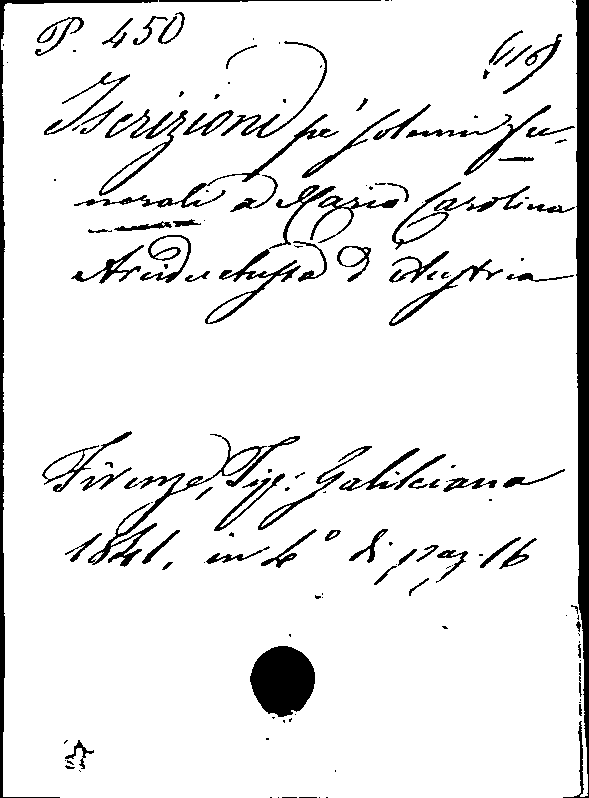 P. 450
(116)
Iscrizioni pe' solenni Fu-
nerali a Maria Carolina
Arciduchessa d'Austria
Firenze, Tip: Galileiana
1841. in 4° di pag. 16